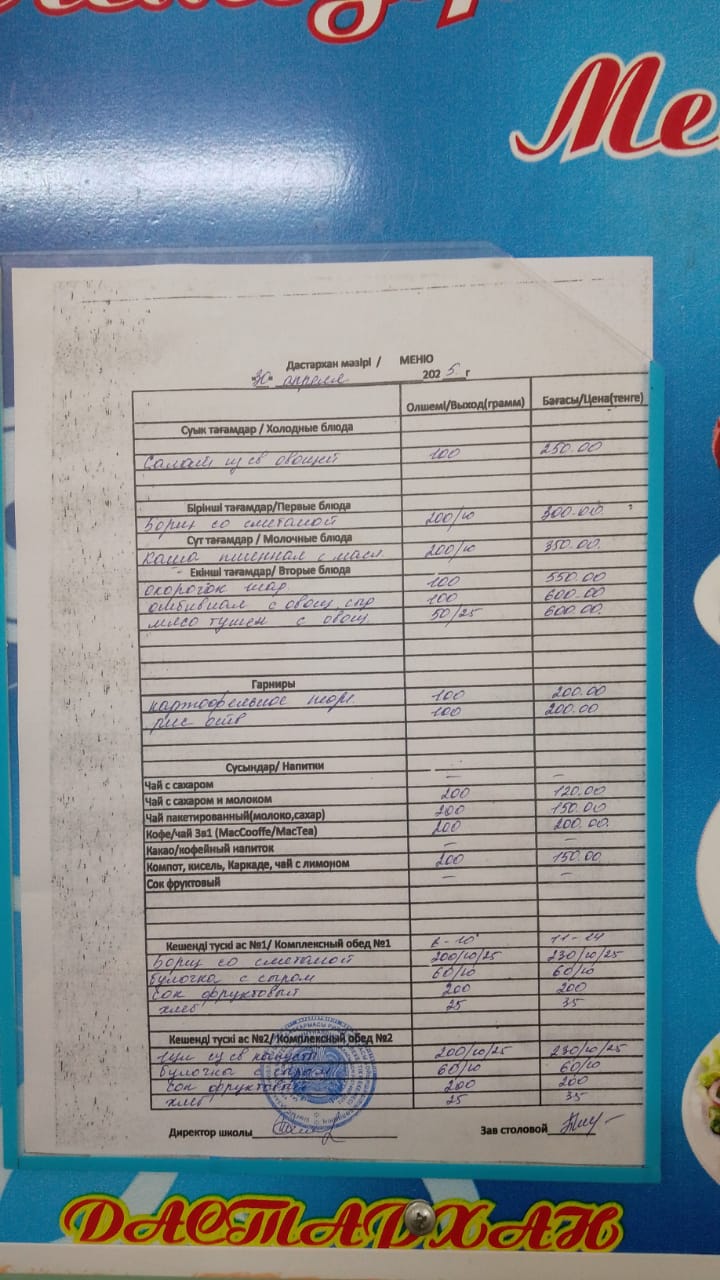 Ме
Дастархан мәзірі / МЕНЮ
"30" апреля 2025 г
Олшемі/Выход(грамм) Бағасы/Цена(тенге)
Суык тағамдар / Холодные блюда
Салат из св овощей 100 250.00
Бірінші тағамдар/Первые блюда
Борщ со сметаной 200/10 300.00.
Сут тағамдар / Молочные блюда
Каша пшенная с масл. 200/10 350.00.
Екінші тағамдар/ Вторые блюда
окорочок жар 100 550.00
с овощ, сыр 100 600.00
мясо тушен с овощ. 50/25 600.00.
Гарниры
картофельное пюре. 100 200.00
рис отв 100 200.00
Сусындар/ Напитки
Чай с сахаром — —
Чай с сахаром и молоком 200 120.00
Чай пакетированный(молоко,сахар) 200 150.00
Кофе/чай 3в1 (MacCooffe/MacTea) 200 200.00.
Какао/кофейный напиток — —
Компот, кисель, Каркаде, чай с лимоном 200 150.00
Сок фруктовый — —
Кешенді тускі ас №1/ Комплексный обед №1 6-10 11-14
Борщ со сметаной 200/10/25 230/10/25
булочка с сыром 60/10 60/10
сок фруктовый 200 200
хлеб 25 35
Кешенді тускі ас №2/ Комплексный обед №2
щи из св капусты 200/10/25 230/10/25
булочка с сыром 60/10 60/10
сок фруктовый 200 200
хлеб 25 35
Директор школы Зав столовой
ДАСТАРХАН